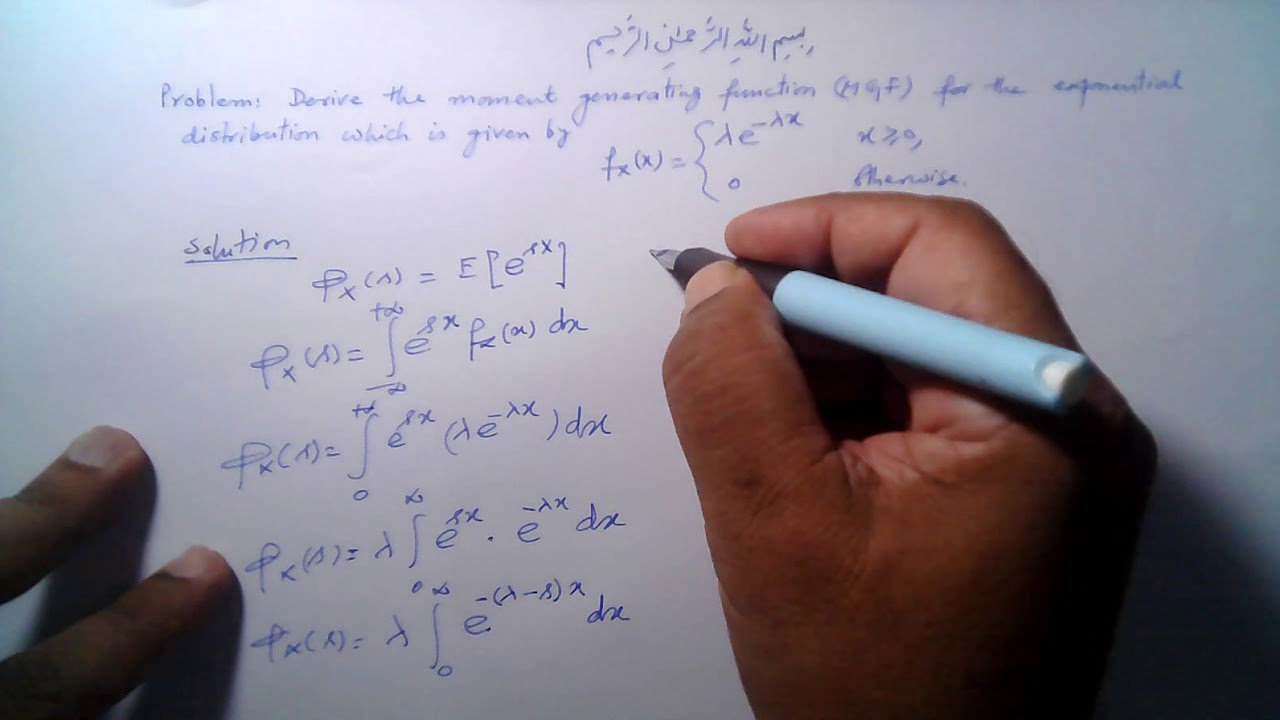 بِسْمِ اللهِ الرَّحْمٰنِ الرَّحِيْمِ
Problem: Derive the moment generating function (MGF) for the exponential
distribution which is given by
fₓ(x) = { λe^{-λx} x ≥ 0,
0 otherwise.
Solution
φₓ(s) = E[e^{sX}]
φₓ(s) = ∫_{-∞}^{+∞} e^{sx} fₓ(x) dx
φₓ(s) = ∫_{0}^{+∞} e^{sx} (λe^{-λx}) dx
φₓ(s) = λ ∫_{0}^{∞} e^{sx} · e^{-λx} dx
φₓ(s) = λ ∫_{0}^{∞} e^{-(λ-s)x} dx